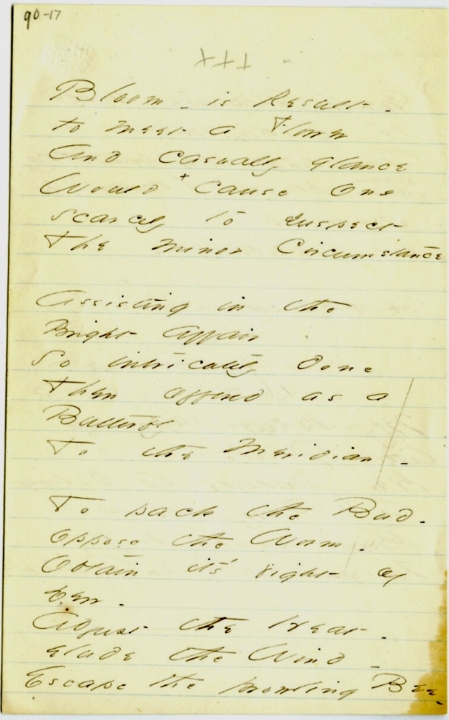 90-17
+++
Bloom - is Result -
to meet a Flower
And casually glance
Would + cause one
scarcely to suspect
The minor Circumstance
Assisting in the
Bright Affair
So intricately done
Then offered as a
Butterfly
To the Meridian -
To pack the Bud -
oppose the Worm -
Obtain its right of
Dew -
Adjust the Heat -
elude the Wind -
Escape the prowling Bee -